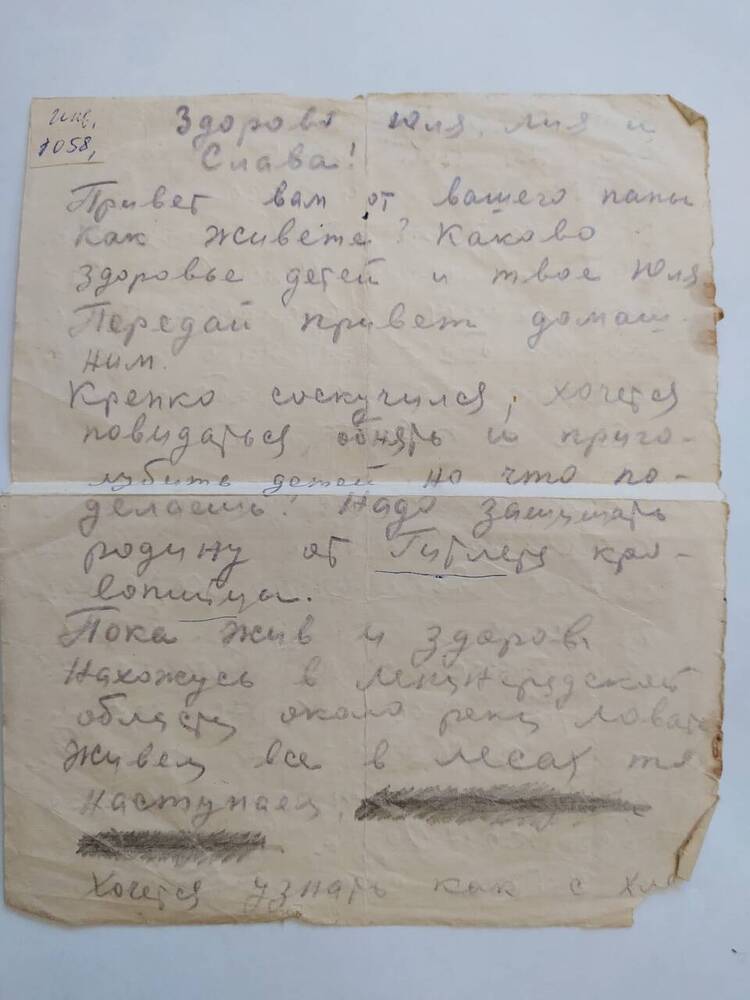 инв.
1058,
Здорово Юля, Лия и
Слава!
Привет вам от вашего папы
Как живете? Каково
здоровье детей и твое Юля
Передай привет домаш-
ним.
Крепко соскучился, хочется
повидаться, обнять и приго-
лубить детей но что по-
делаешь! Надо защищать
родину от Гитлера кро-
вопийцы.
Пока жив и здоров.
Нахожусь в Ленинградской
области около реки Ловать
Живем все в лесах
наступаем,
Хочется узнать как с